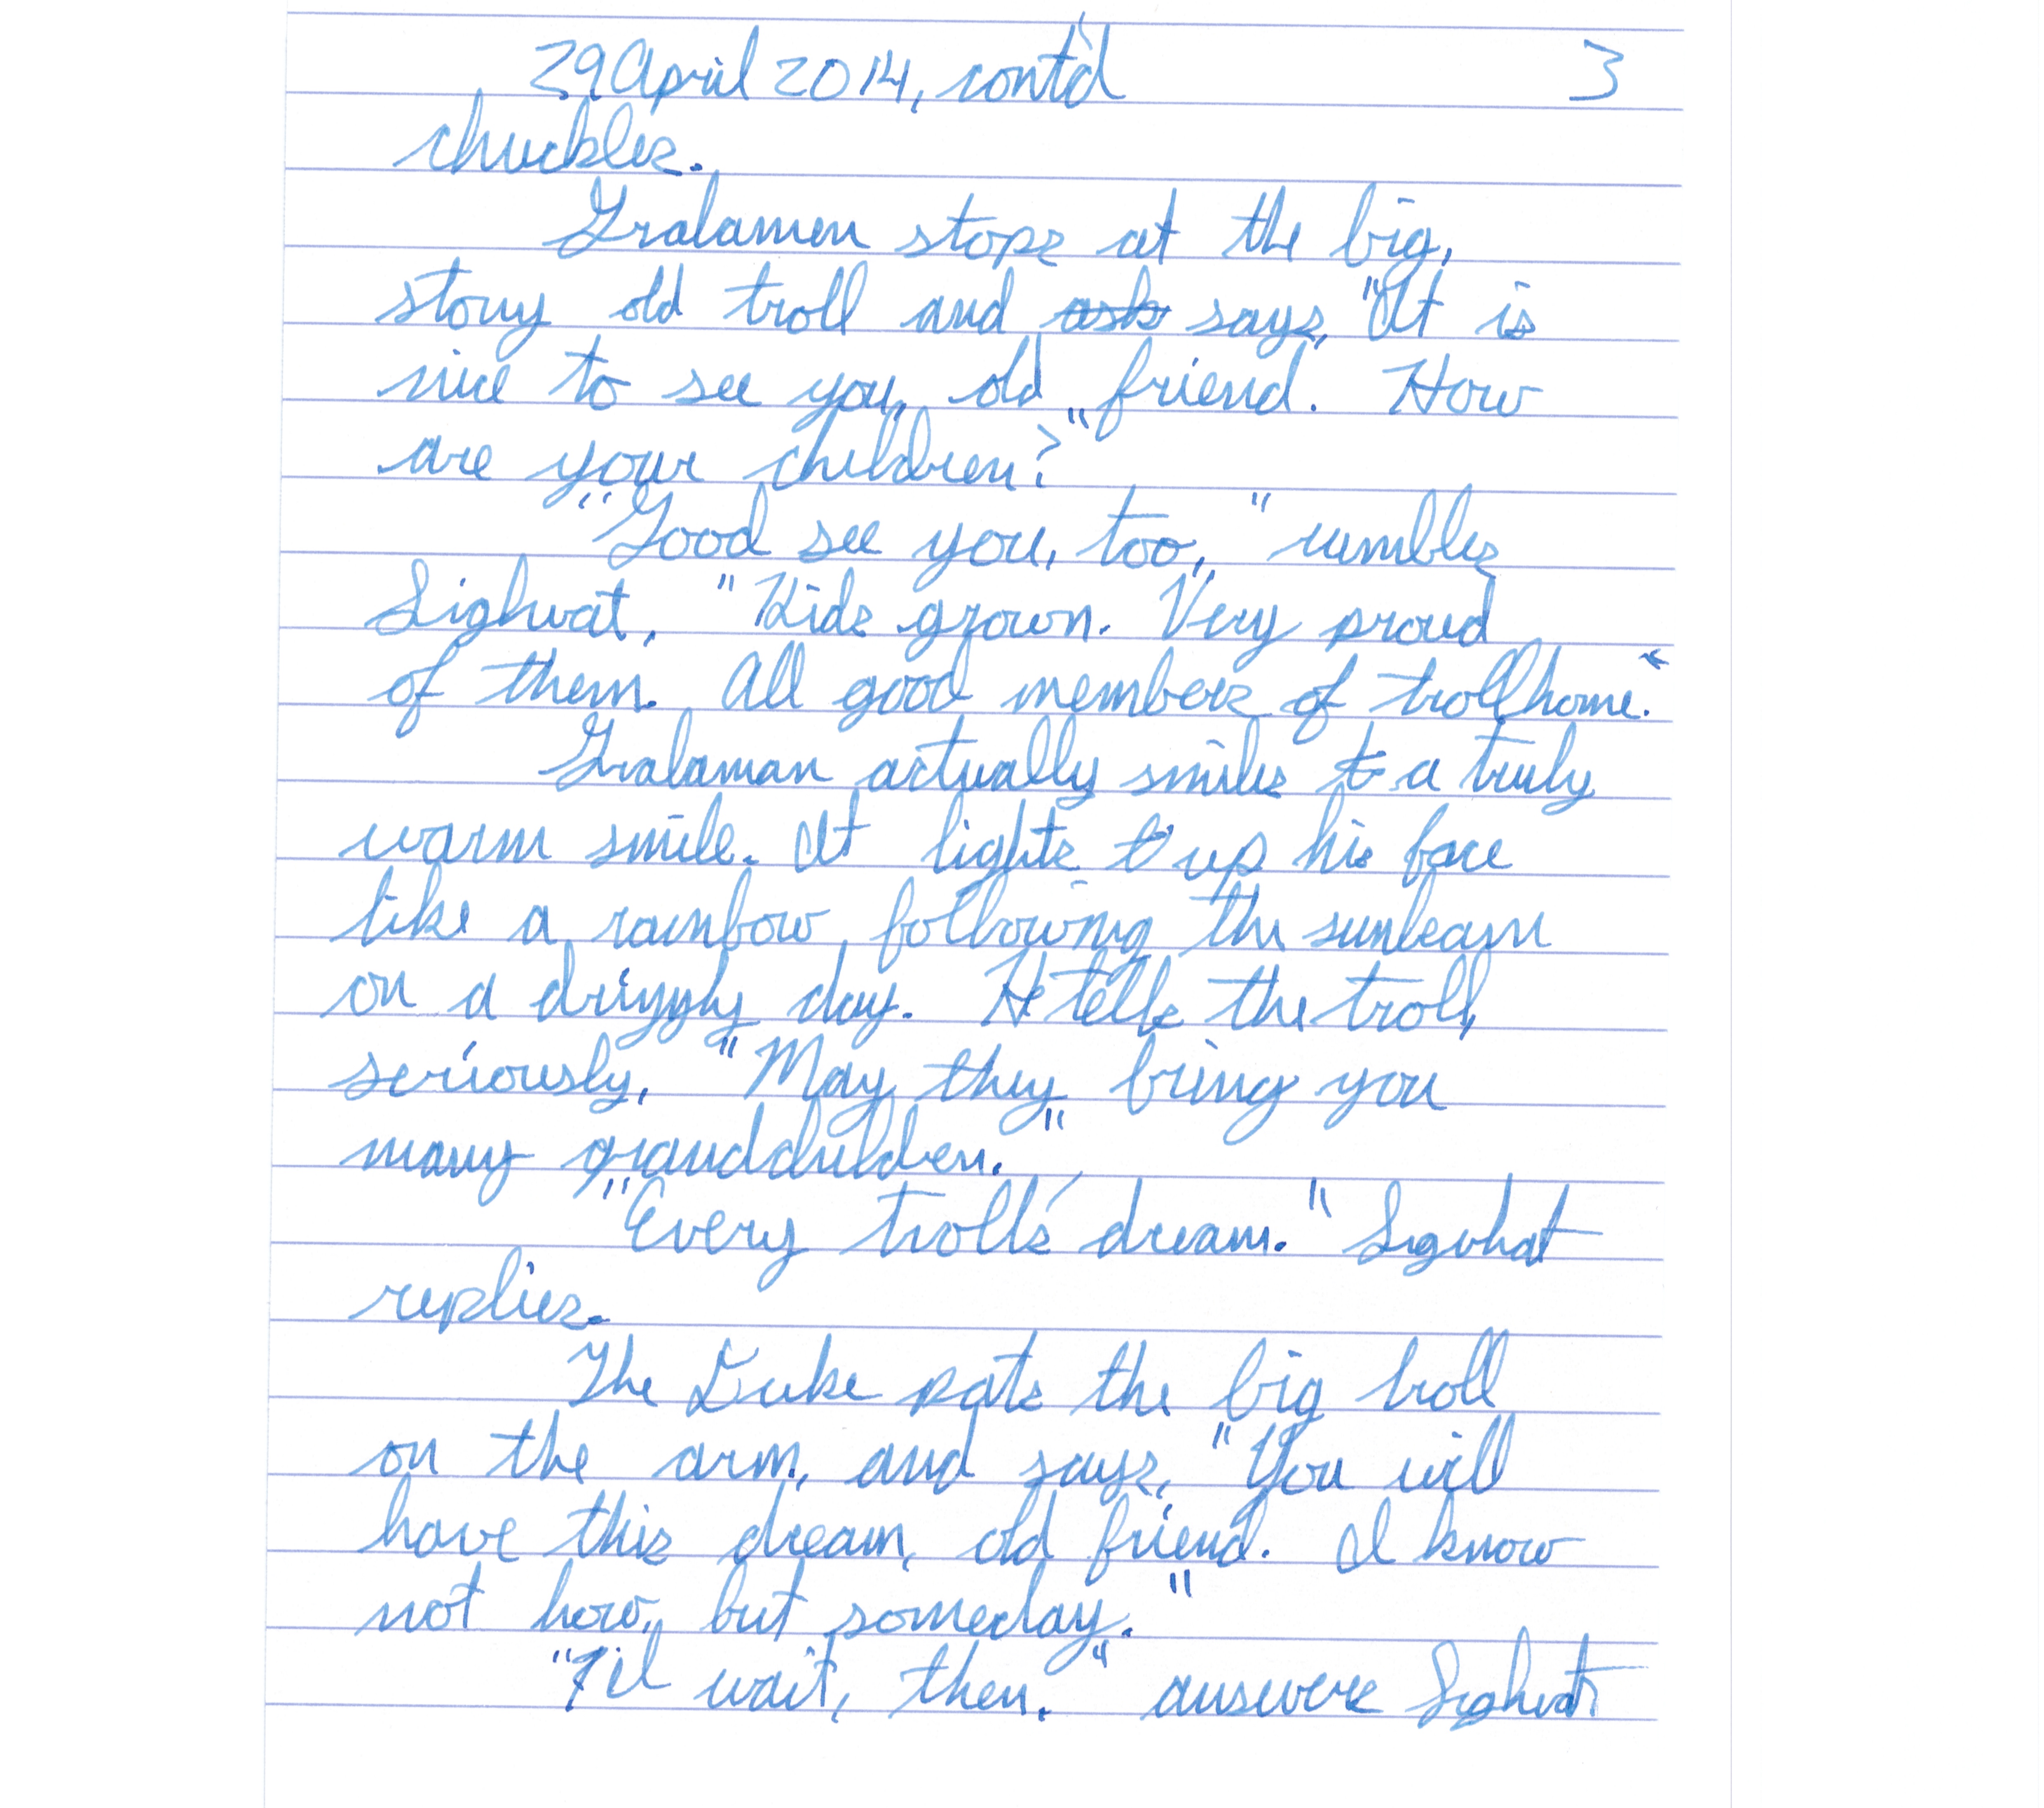 29 April 2014, cont'd 3
chuckles.
Gralamen stops at the big,
stony old troll and ask says, "It is
nice to see you, old friend. How
are your children?"
"Good see you, too," rumbles
Sighvat. "Kids grown. Very proud
of them. All good members of trollhome."
Gralaman actually smiles t a truly
warm smile. It lights t up his face
like a rainbow following the sunbeam
on a drizzly day. He tells the troll,
seriously, "May they bring you
many grandchildren."
"Every troll's dream." Sigvhat
replies.
The Duke pats the big troll
on the arm, and says, "You will
have this dream, old friend. I know
not how, but someday."
"I'll wait, then." answers Sighvat